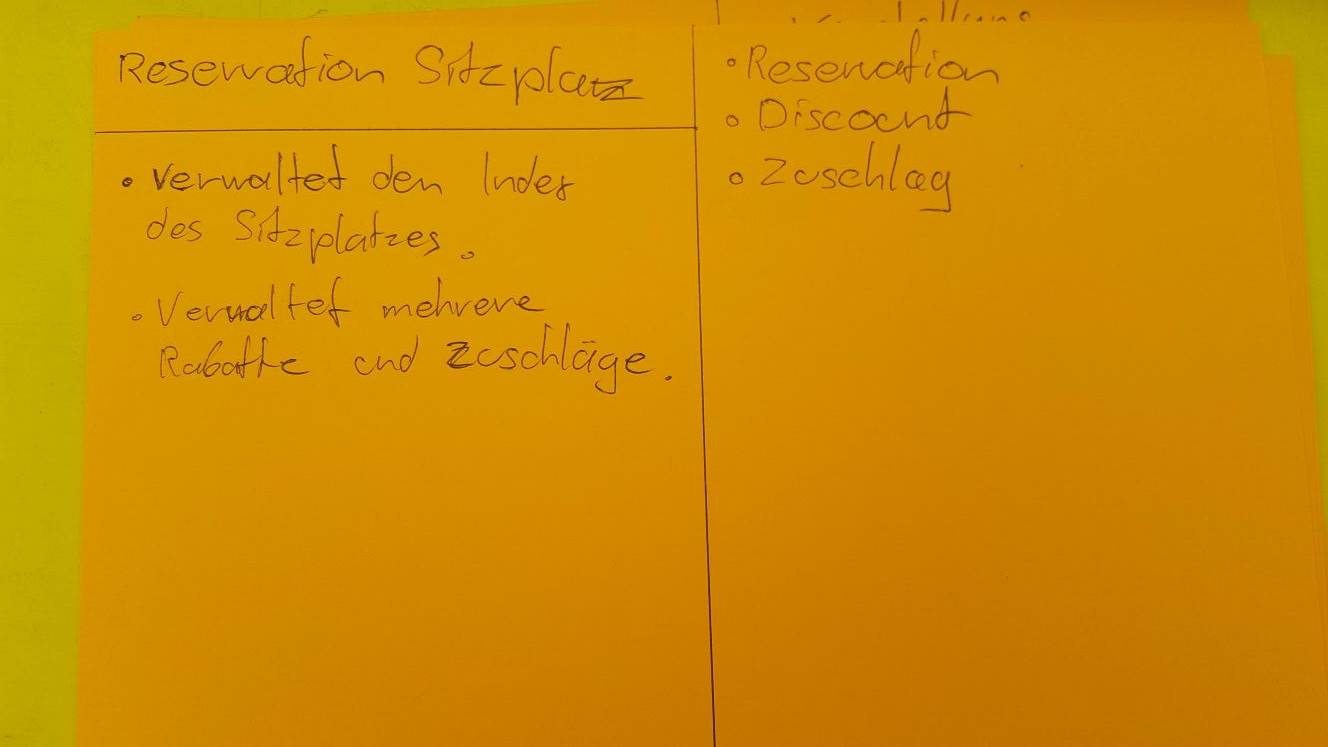 Reservation Sitzplatz
• Verwaltet den Index
des Sitzplatzes.
• Verwaltet mehrere
Rabatte und Zuschläge.
• Reservation
• Discount
• Zuschlag